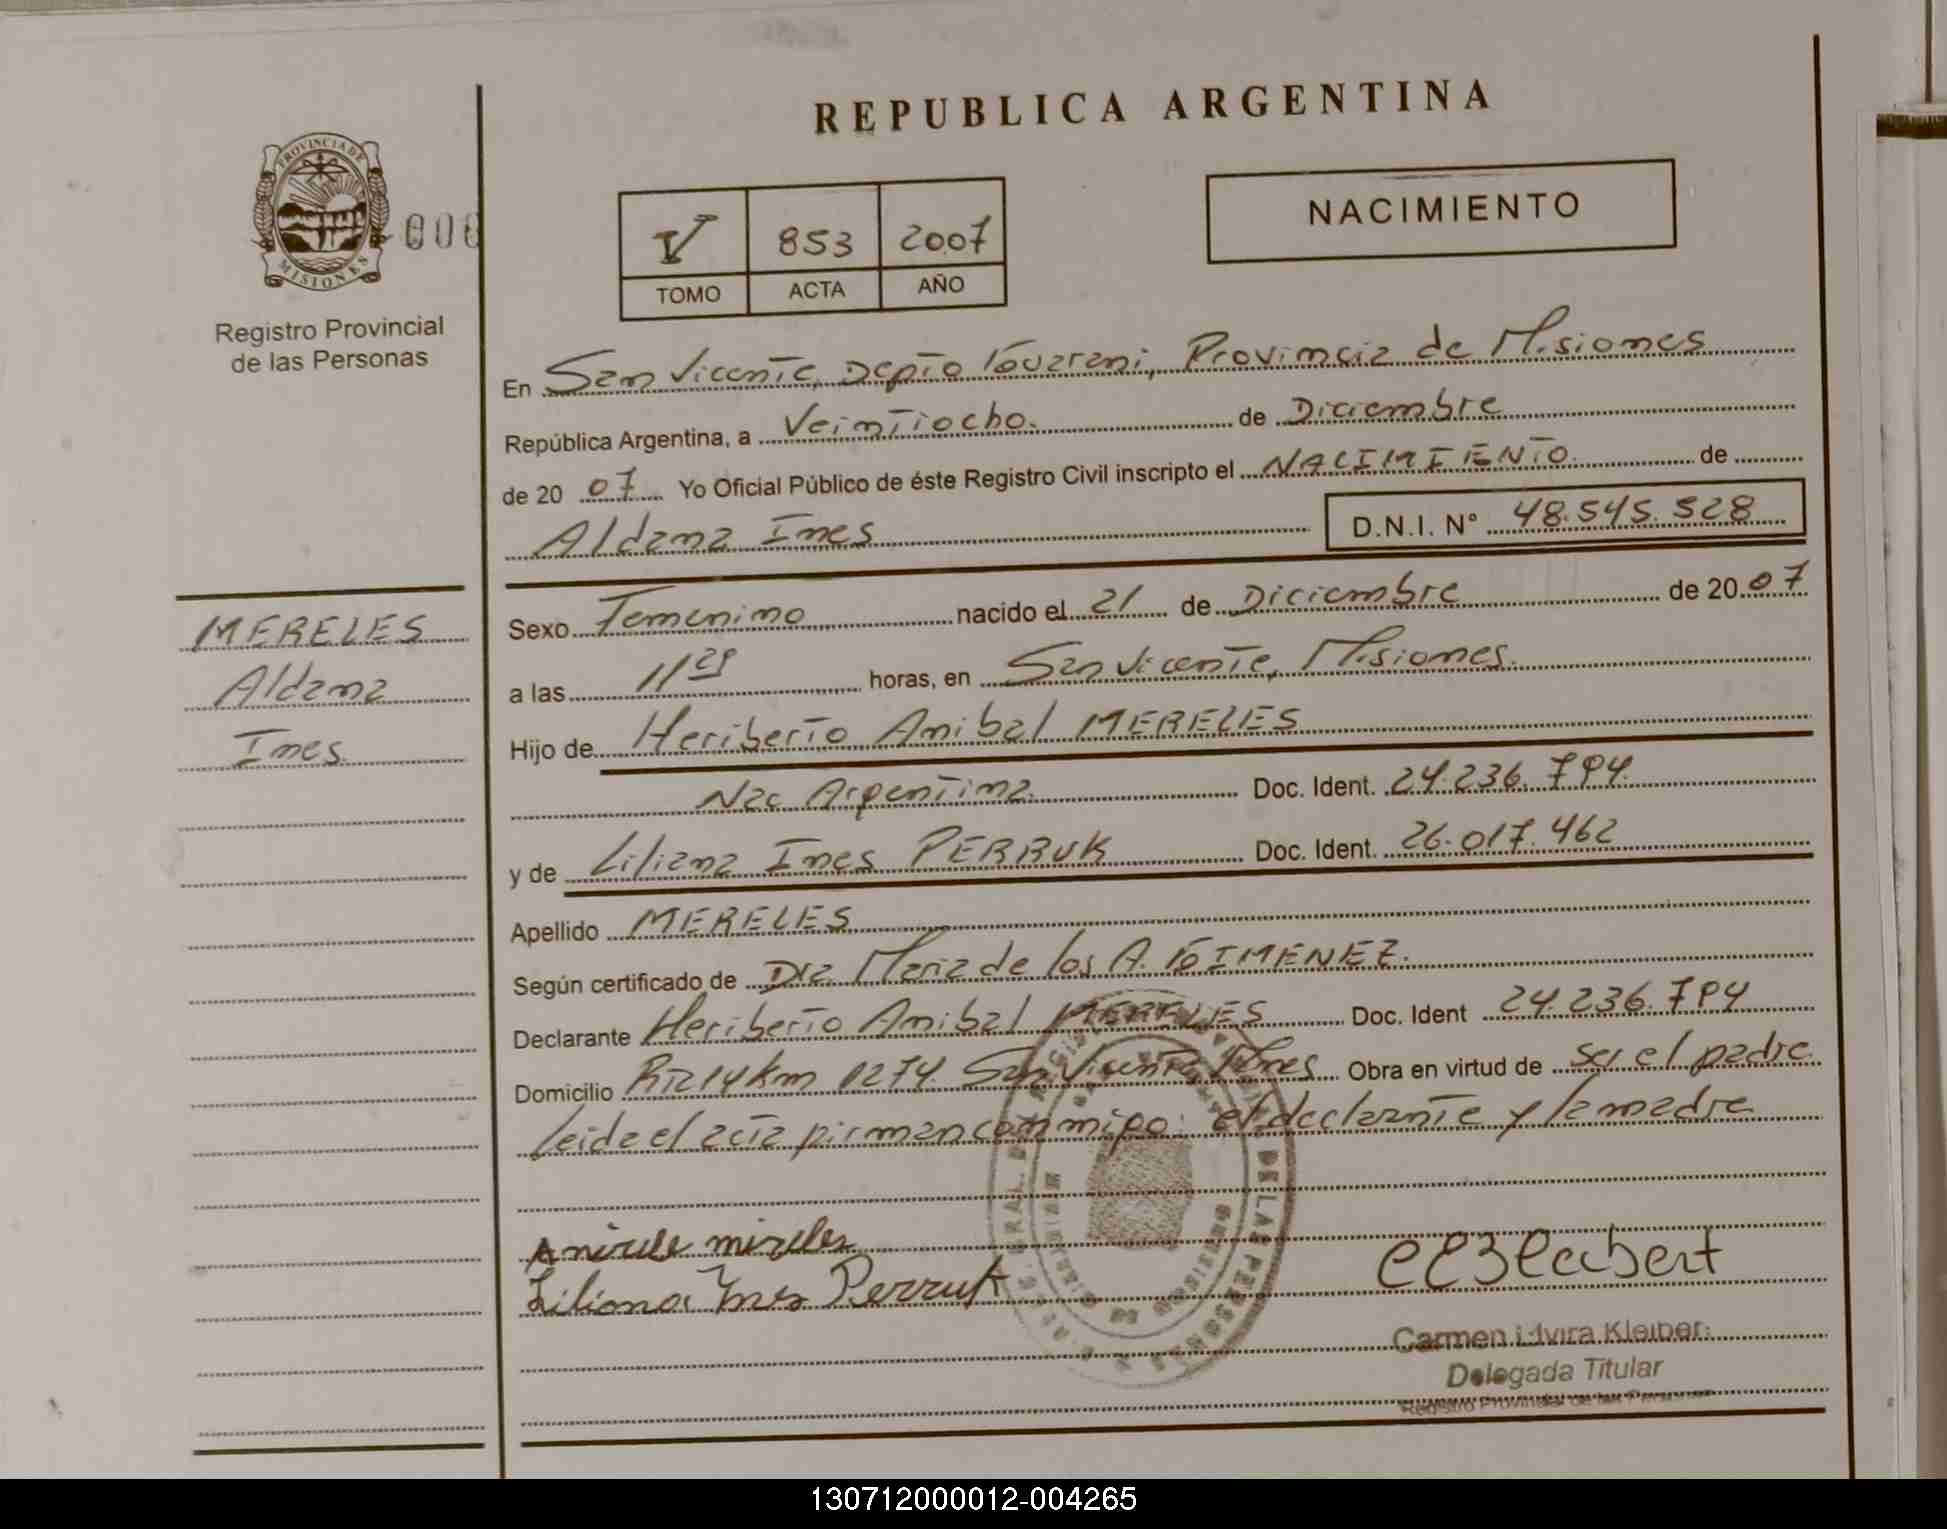 REPUBLICA ARGENTINA
PROVINCIA DE
MISIONES
000
Registro Provincial
de las Personas
V 853 2007
TOMO ACTA AÑO
NACIMIENTO
En San Vicente, Depto Guarani, Provincia de Misiones
República Argentina, a Veintiocho. de Diciembre
de 20 07 Yo Oficial Público de éste Registro Civil inscripto el NACIMIENTO. de
Aldana Ines D.N.I. N° 48.545.528
MERELES
Aldana
Ines.
Sexo Femenino nacido el 21 de Diciembre de 20 07
a las 11 29 horas, en San Vicente, Misiones.
Hijo de Heriberto Anibal MERELES
Nac Argentina. Doc. Ident. 24.236.794.
y de Liliana Ines PERRUK Doc. Ident. 26.017.462
Apellido MERELES
Según certificado de Dra. Maria de los A. GIMENEZ.
Declarante Heriberto Anibal MERELES Doc. Ident 24.236.794
Domicilio Rt 14 km 1274. San Vicente Mnes Obra en virtud de ser el padre.
leida el acta firman conmigo: el declarante y la madre
DE LAS PERSONAS
Liliana Ines Perruk
Carmen Elvira Kleiber
Delegada Titular
Registro Provincial de las Personas
130712000012-004265